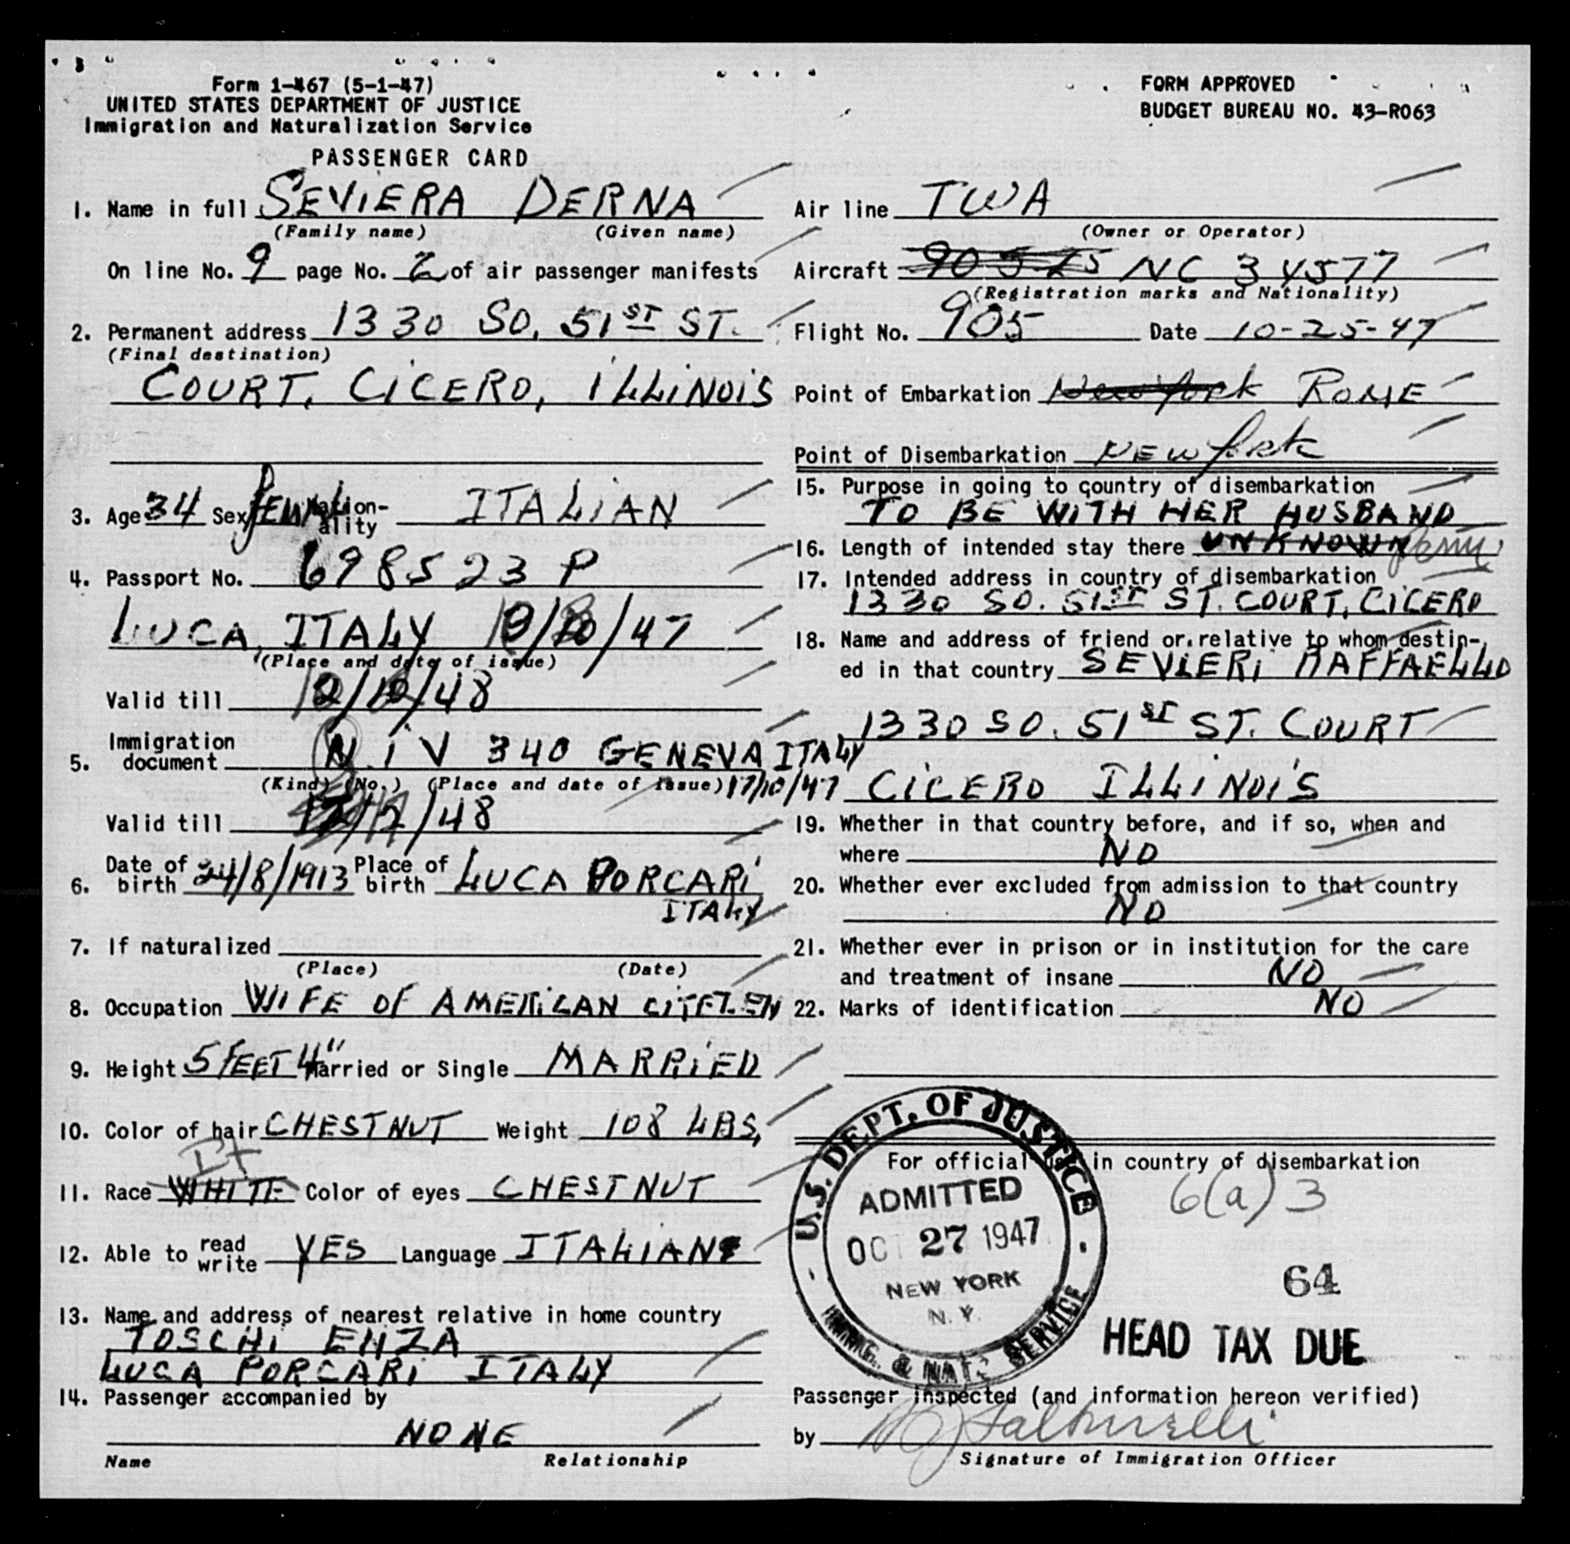 Form 1-467 (5-1-47)
UNITED STATES DEPARTMENT OF JUSTICE
Immigration and Naturalization Service
PASSENGER CARD
FORM APPROVED
BUDGET BUREAU NO. 43-R063
1. Name in full SEVIERA DERNA
(Family name) (Given name)
On line No. 9 page No. 2 of air passenger manifests
2. Permanent address 1330 SO. 51ST ST.
(Final destination)
COURT, CICERO, ILLINOIS
3. Age 34 Sex Nation-ality ITALIAN
4. Passport No. 698523 P
LUCA, ITALY /47
(Place and date of issue)
Valid till /48
5. Immigration document N.I V 340 GENEVA ITALY
(Kind) (No.) (Place and date of issue) 17/10/47
Valid till /48
6. Date of birth 24/8/1913 Place of birth LUCA PORCARI
ITALY
7. If naturalized
(Place) (Date)
8. Occupation WIFE OF AMERICAN CITEZEN
9. Height 5 FEET 4" Married or Single MARRIED
10. Color of hair CHESTNUT Weight 108 LBS,
It
11. Race WHITE Color of eyes CHESTNUT
12. Able to read write YES Language ITALIAN
13. Name and address of nearest relative in home country
TOSCHI ENZA
LUCA PORCARI ITALY
14. Passenger accompanied by
NONE
Name Relationship
Air line TWA
(Owner or Operator)
Aircraft NC 34577
(Registration marks and Nationality)
Flight No. 905 Date 10-25-47
Point of Embarkation New York ROME
Point of Disembarkation NEW York
15. Purpose in going to country of disembarkation
TO BE WITH HER HUSBAND
16. Length of intended stay there UNKNOWN
17. Intended address in country of disembarkation
1330 SO. 51ST ST. COURT, CICERO
18. Name and address of friend or relative to whom destin-
ed in that country SEVIERI RAFFAELLO
1330 SO. 51ST ST. COURT
CICERO ILLINOIS
19. Whether in that country before, and if so, when and
where NO
20. Whether ever excluded from admission to that country
NO
21. Whether ever in prison or in institution for the care
and treatment of insane NO
22. Marks of identification NO
For official use in country of disembarkation
6(a)3
U.S. DEPT. OF JUSTICE
ADMITTED
OCT 27 1947
NEW YORK
N. Y.
IMMIG. & NAT. SERVICE
64
HEAD TAX DUE
Passenger inspected (and information hereon verified)
by
Signature of Immigration Officer